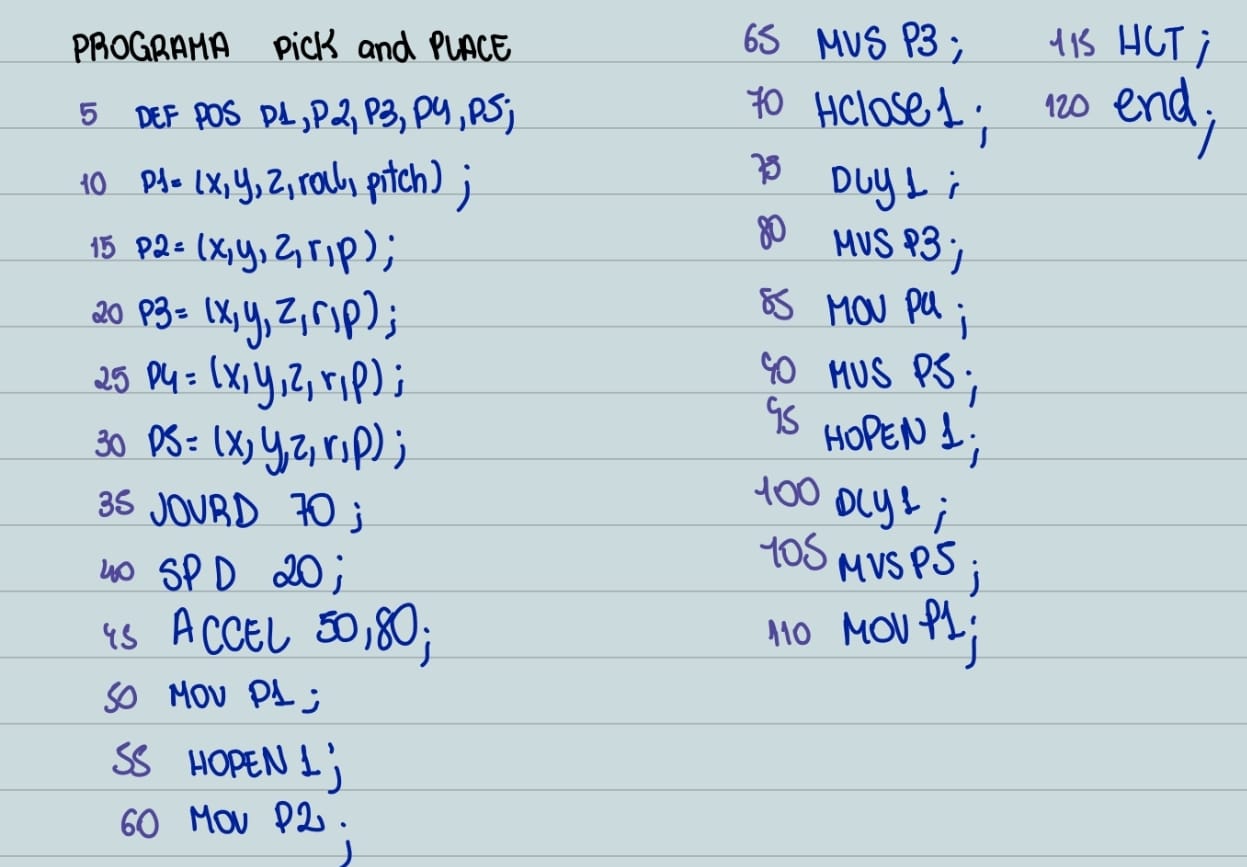 PROGRAMA Pick and PLACE
5 DEF POS P1,P2,P3,P4,P5;
10 P1= (x,y,z,roll,pitch);
15 P2= (x,y,z,r,p);
20 P3= (x,y,z,r,p);
25 P4= (x,y,z,r,p);
30 P5= (x,y,z,r,p);
35 JOVRD 70;
40 SPD 20;
45 ACCEL 50,80;
50 MOV P1;
55 HOPEN 1;
60 MOV P2;
65 MVS P3;
70 HClose 1;
75 DLY 1;
80 MVS P3;
85 MOV P4;
90 MVS P5;
95 HOPEN 1;
100 DLY 1;
105 MVS P5;
110 MOV P1;
115 HLT;
120 end;